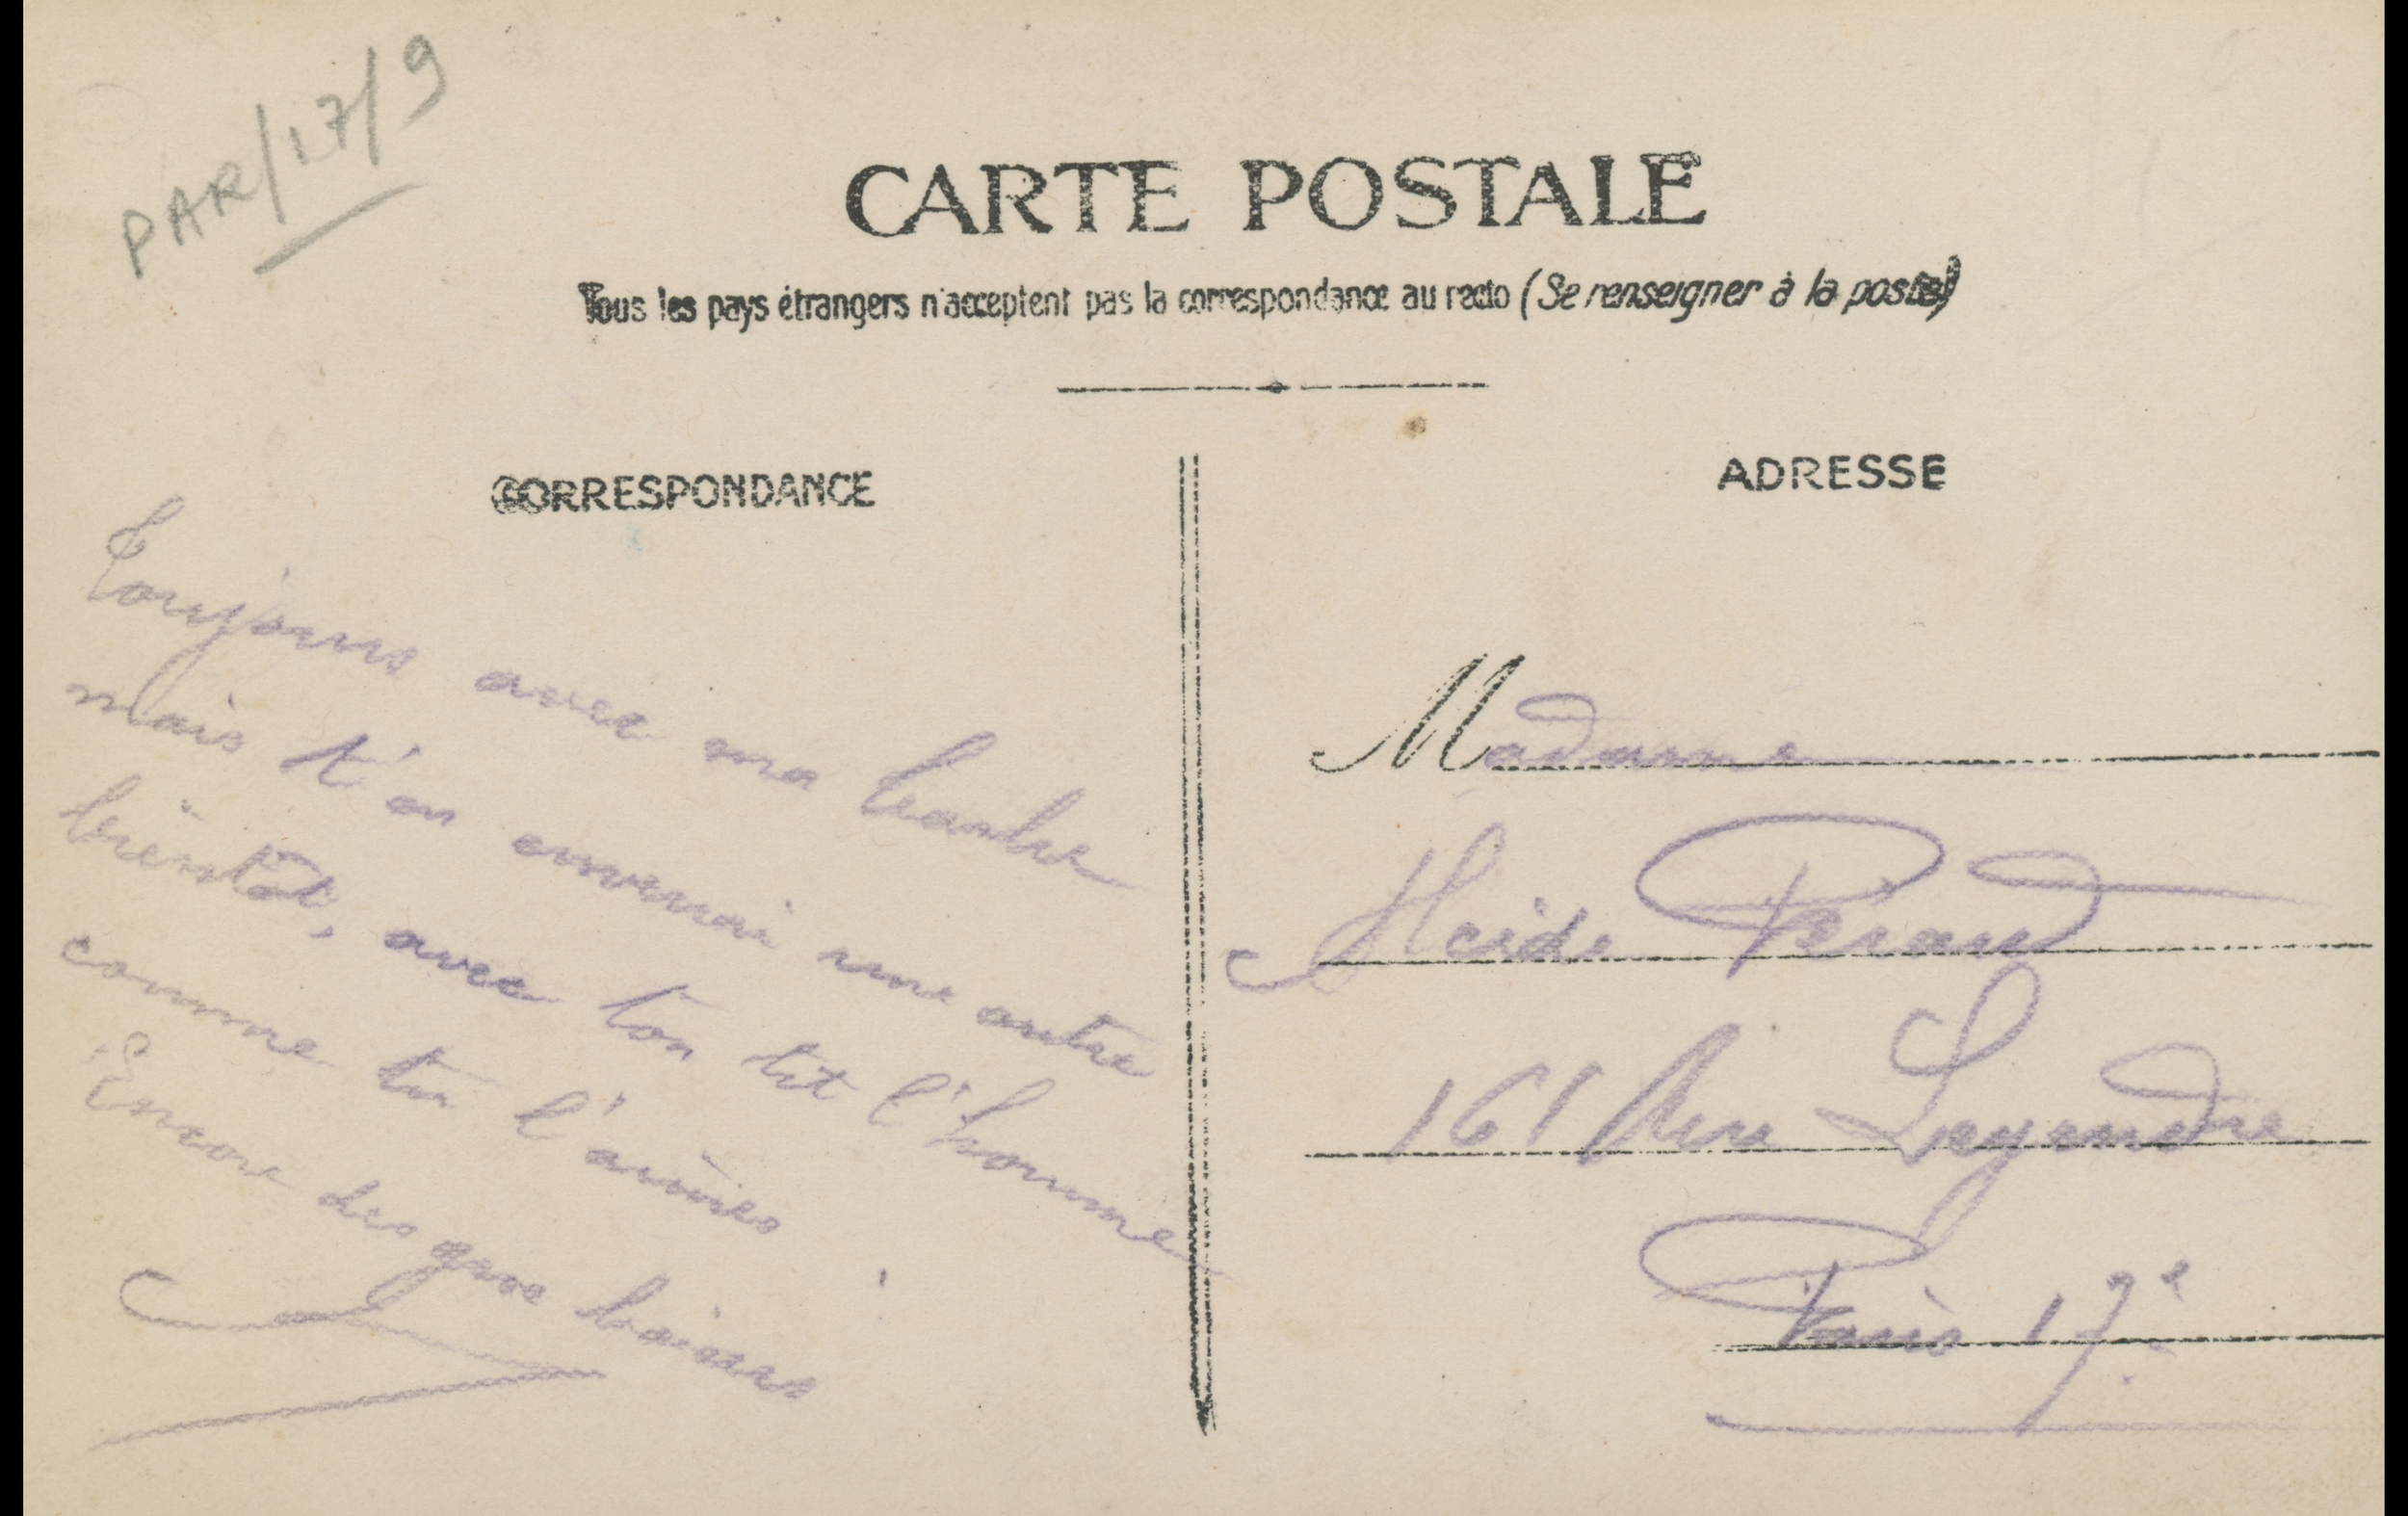 PAR/17/9
CARTE POSTALE
Tous les pays étrangers n'acceptent pas la correspondance au recto (Se renseigner à la poste)
CORRESPONDANCE
Toujours avec ma barbe
mais t'en enverrai une autre
bientôt, avec ton tit l'homme
comme tu l'aimes
Encore des gros baisers
ADRESSE
Madame
Péraud
161 Rue Legendre
Paris 17e